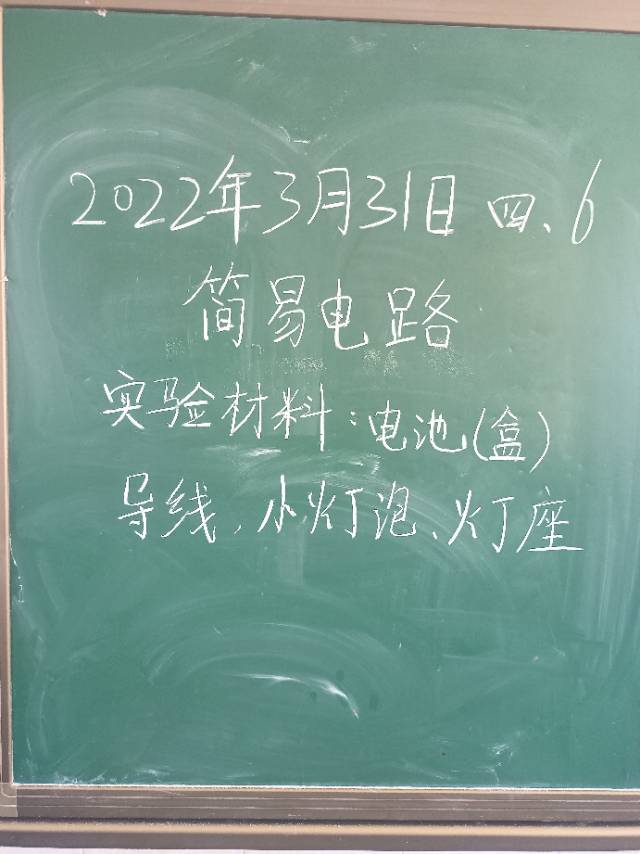 2022年3月31日 四、6
简易电路
实验材料:电池(盒)
导线、小灯泡、灯座